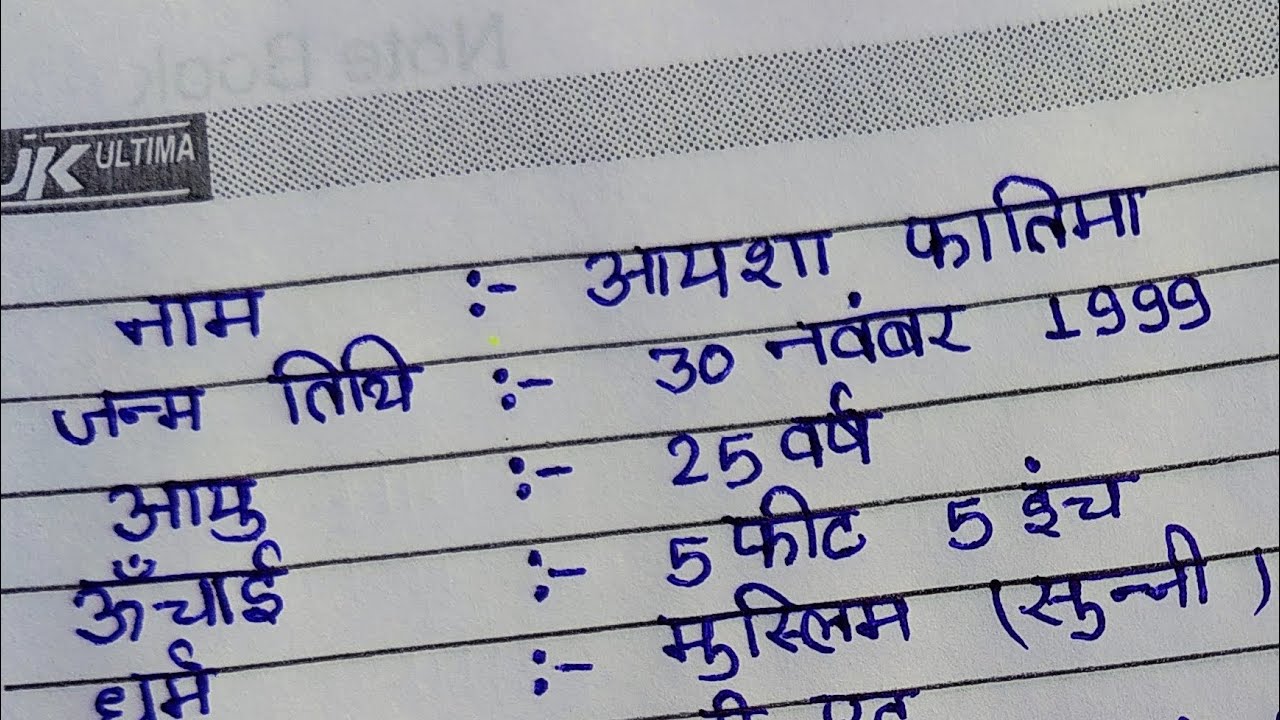 Note Book
JK ULTIMA
नाम :- आयशा फातिमा
जन्म तिथि :- 30 नवंबर 1999
आयु :- 25 वर्ष
ऊँचाई :- 5 फीट 5 इंच
धर्म :- मुस्लिम (सुन्नी)